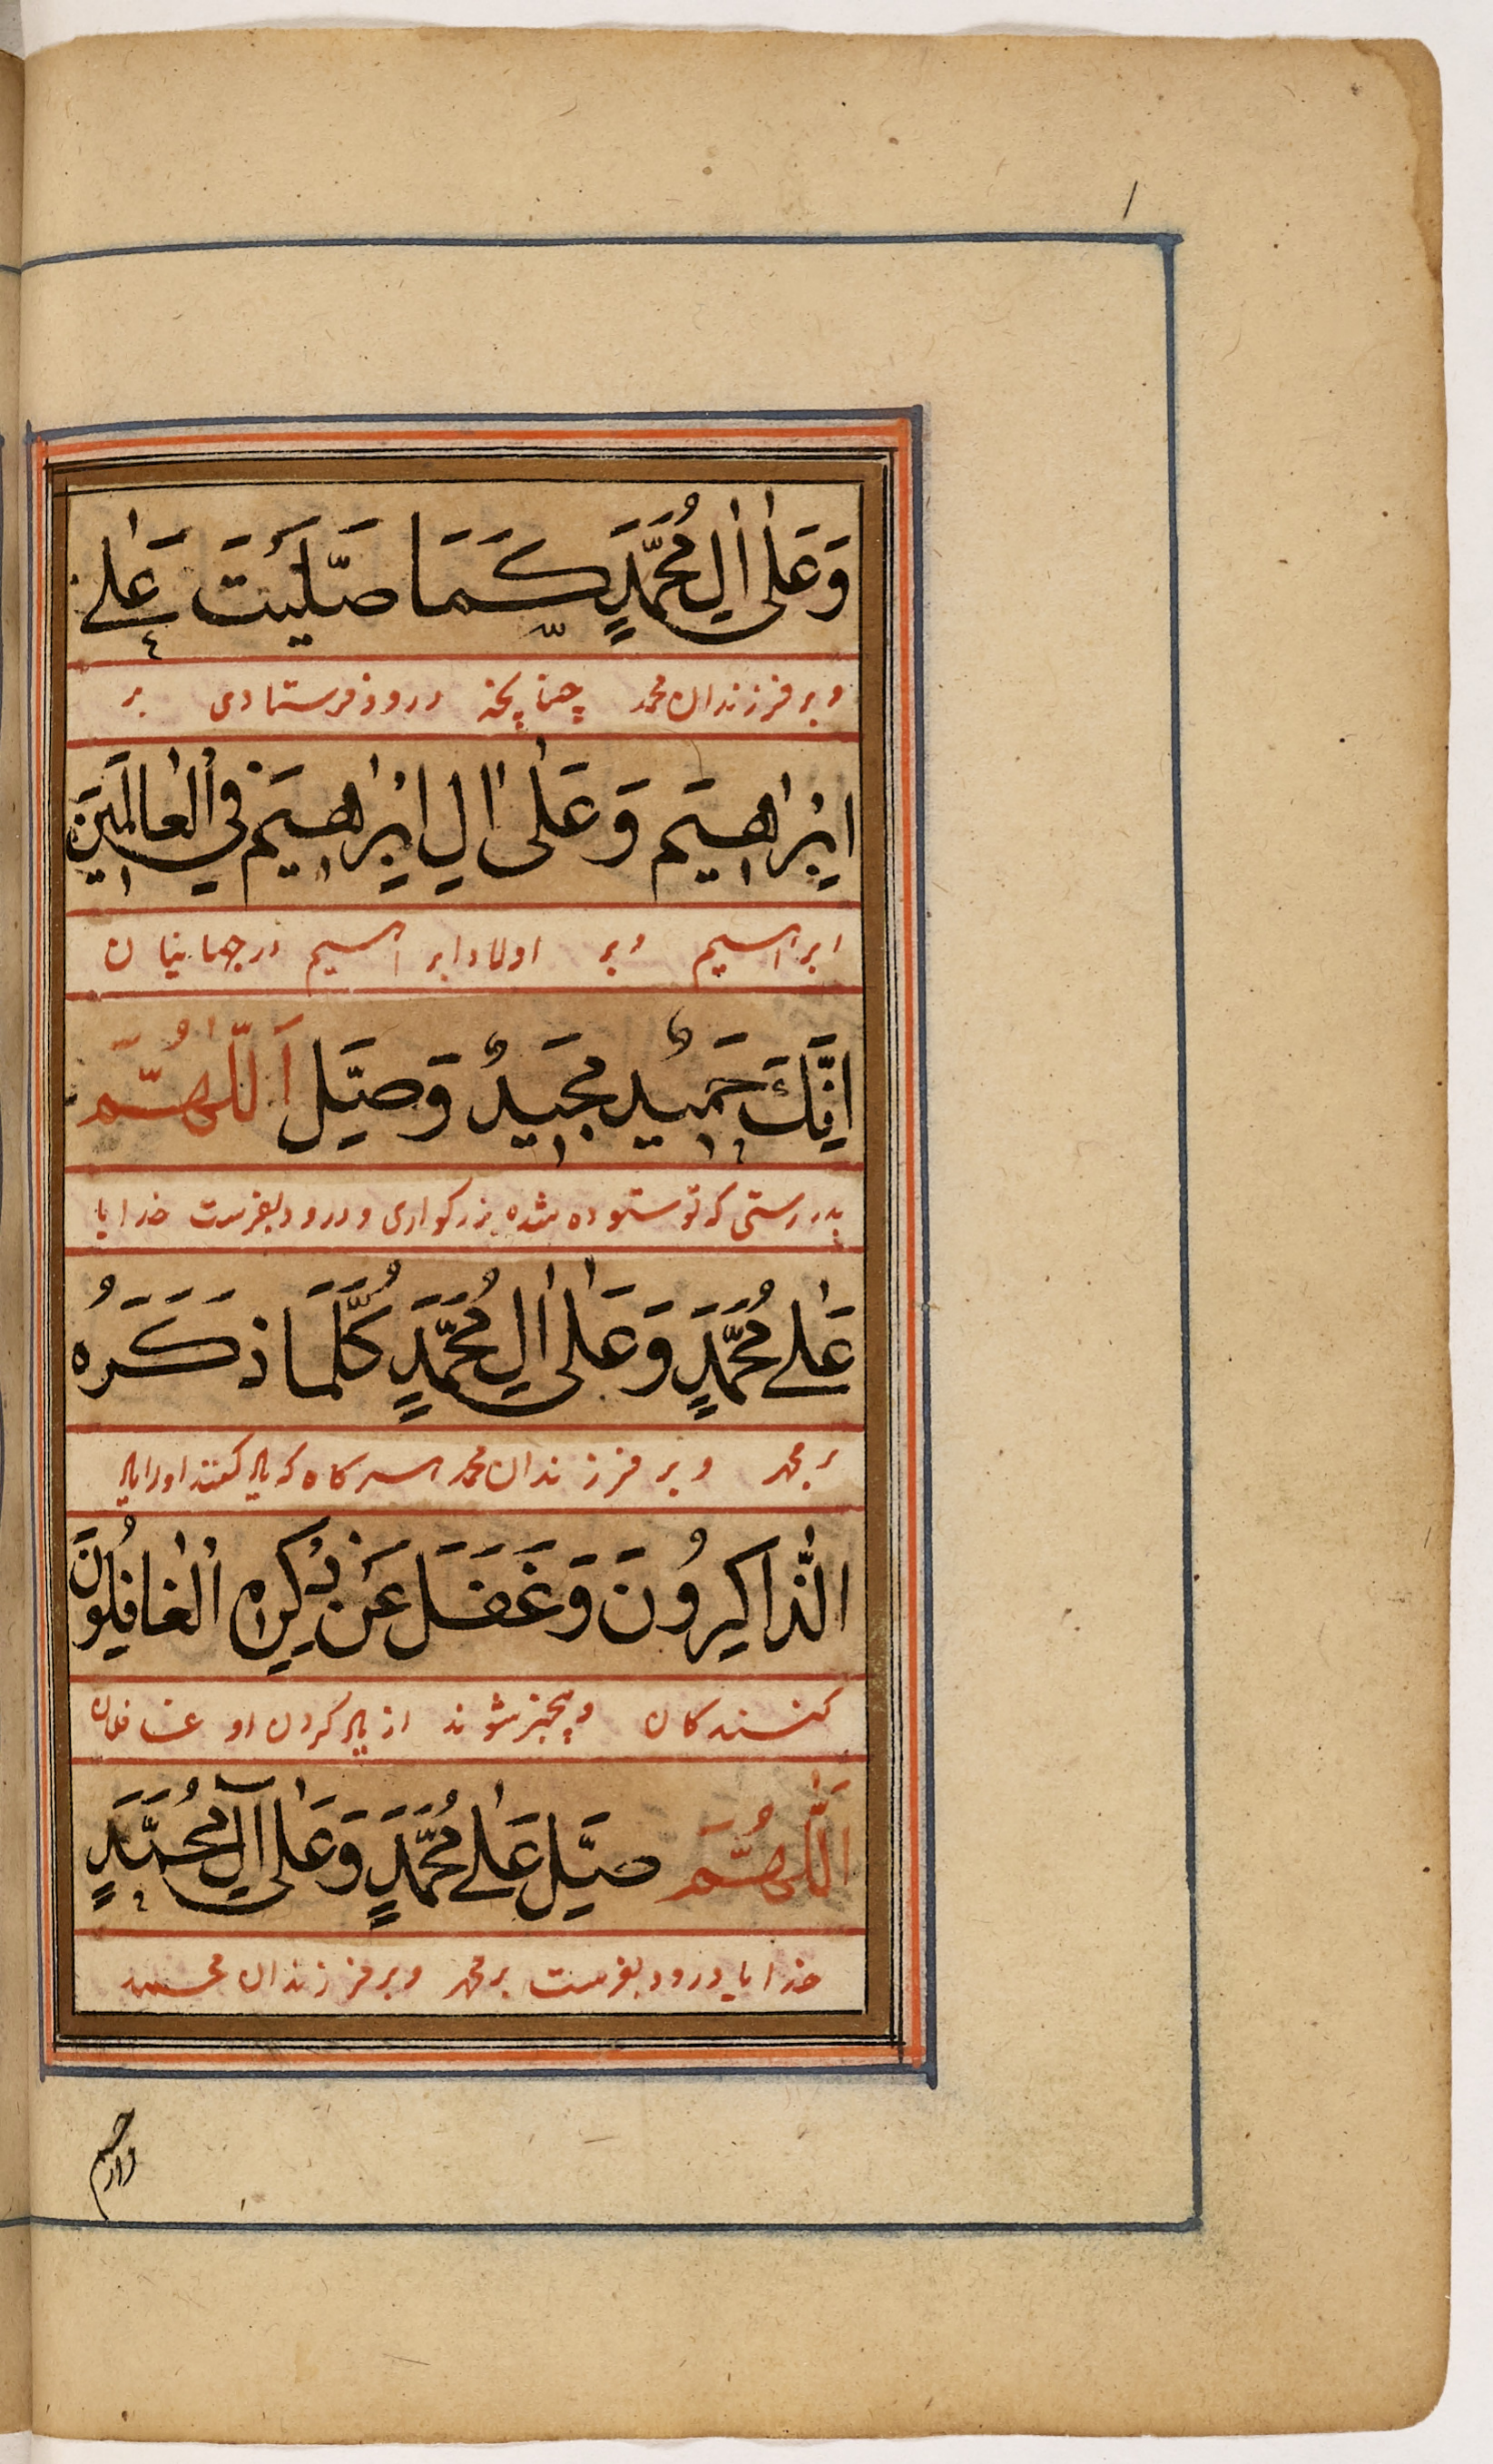 وَعَلٰى اٰلِ مُحَمَّدٍ كَمَا صَلَّيْتَ عَلٰى
و بر فرزندان محمد چنانچه درود فرستادی بر
اِبْرٰاهِيمَ وَعَلٰى اٰلِ اِبْرٰاهِيمَ فِي الْعٰالَمِينَ
ابراهیم و بر اولاد ابراهیم در جهانیان
اِنَّكَ حَمِيدٌ مَجِيدٌ وَصَلِّ اَللّٰهُمَّ
بدرستی که تو ستوده شده بزرکواری و درود بفرست خدایا
عَلٰى مُحَمَّدٍ وَعَلٰى اٰلِ مُحَمَّدٍ كُلَّمَا ذَكَرَهُ
بر محمد و بر فرزندان محمد هر کاه که یاد کنند او را یاد
الذّٰاكِرُونَ وَغَفَلَ عَنْ ذِكْرِهِ الْغٰافِلُونَ
کنندکان و بیخبر شوند از یاد کردن او غافلان
اَللّٰهُمَّ صَلِّ عَلٰى مُحَمَّدٍ وَعَلٰى آلِ مُحَمَّدٍ
خدایا درود بفرست بر محمد و بر فرزندان محمد
وارحم